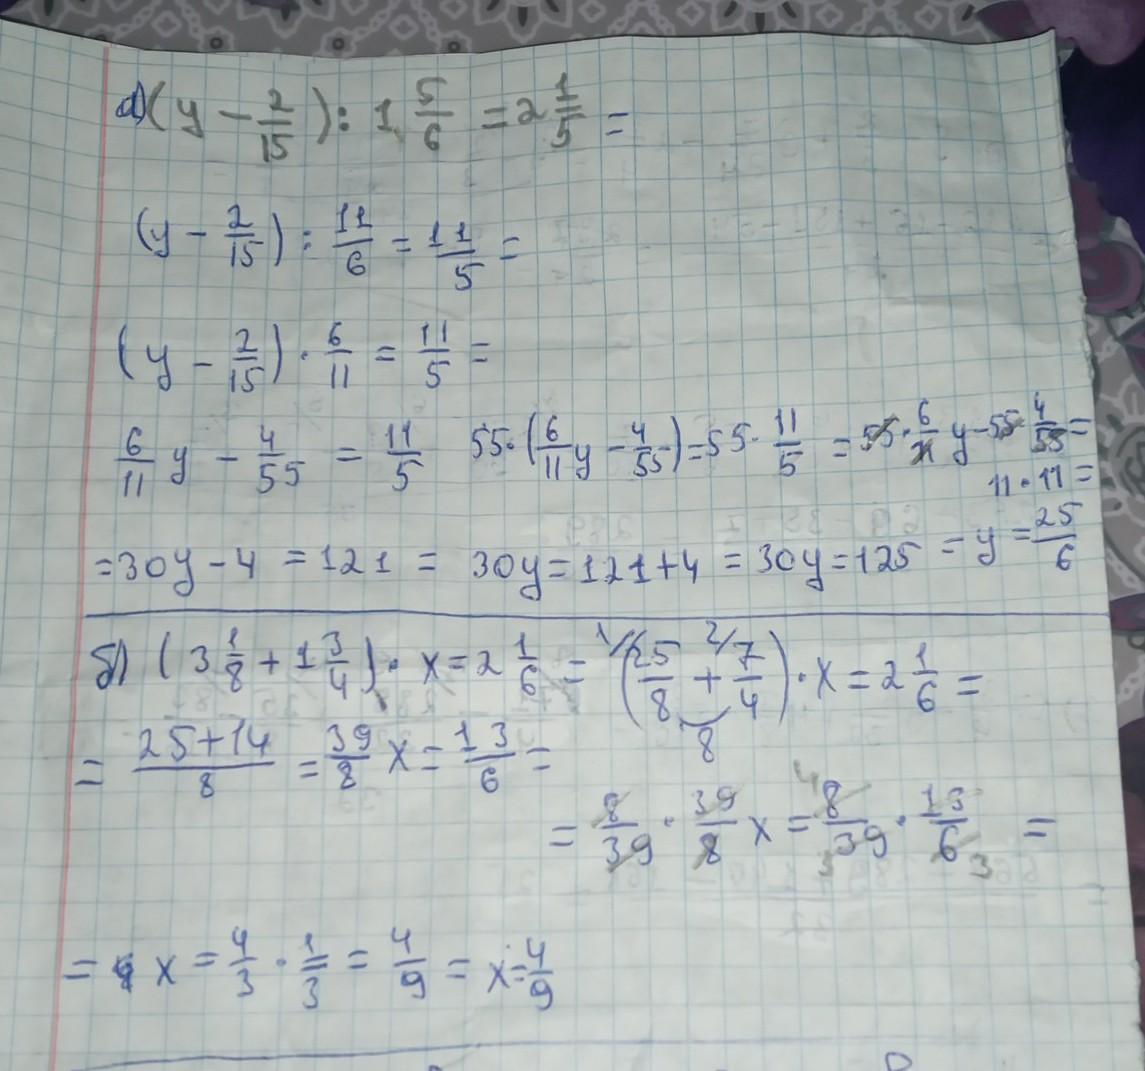 а) (y - 2/15) : 1 5/6 = 2 1/5 =
(y - 2/15) : 11/6 = 11/5 =
(y - 2/15) · 6/11 = 11/5 =
6/11 y - 4/55 = 11/5   55·(6/11 y - 4/55) = 55 · 11/5 = 55 · 6/11 y - 55 · 4/55 =
11 · 11 =
= 30y - 4 = 121 = 30y = 121 + 4 = 30y = 125 = y = 25/6
б) (3 1/8 + 1 3/4) · x = 2 1/6 = (1/ 25/8 + 2/ 7/4) · x = 2 1/6 =
8
= (25 + 14)/8 = 39/8 x = 13/6 =
= 8/39 · 39/8 x = 4 8/39 3 · 13/6 3 =
= x = 4/3 · 1/3 = 4/9 = x = 4/9